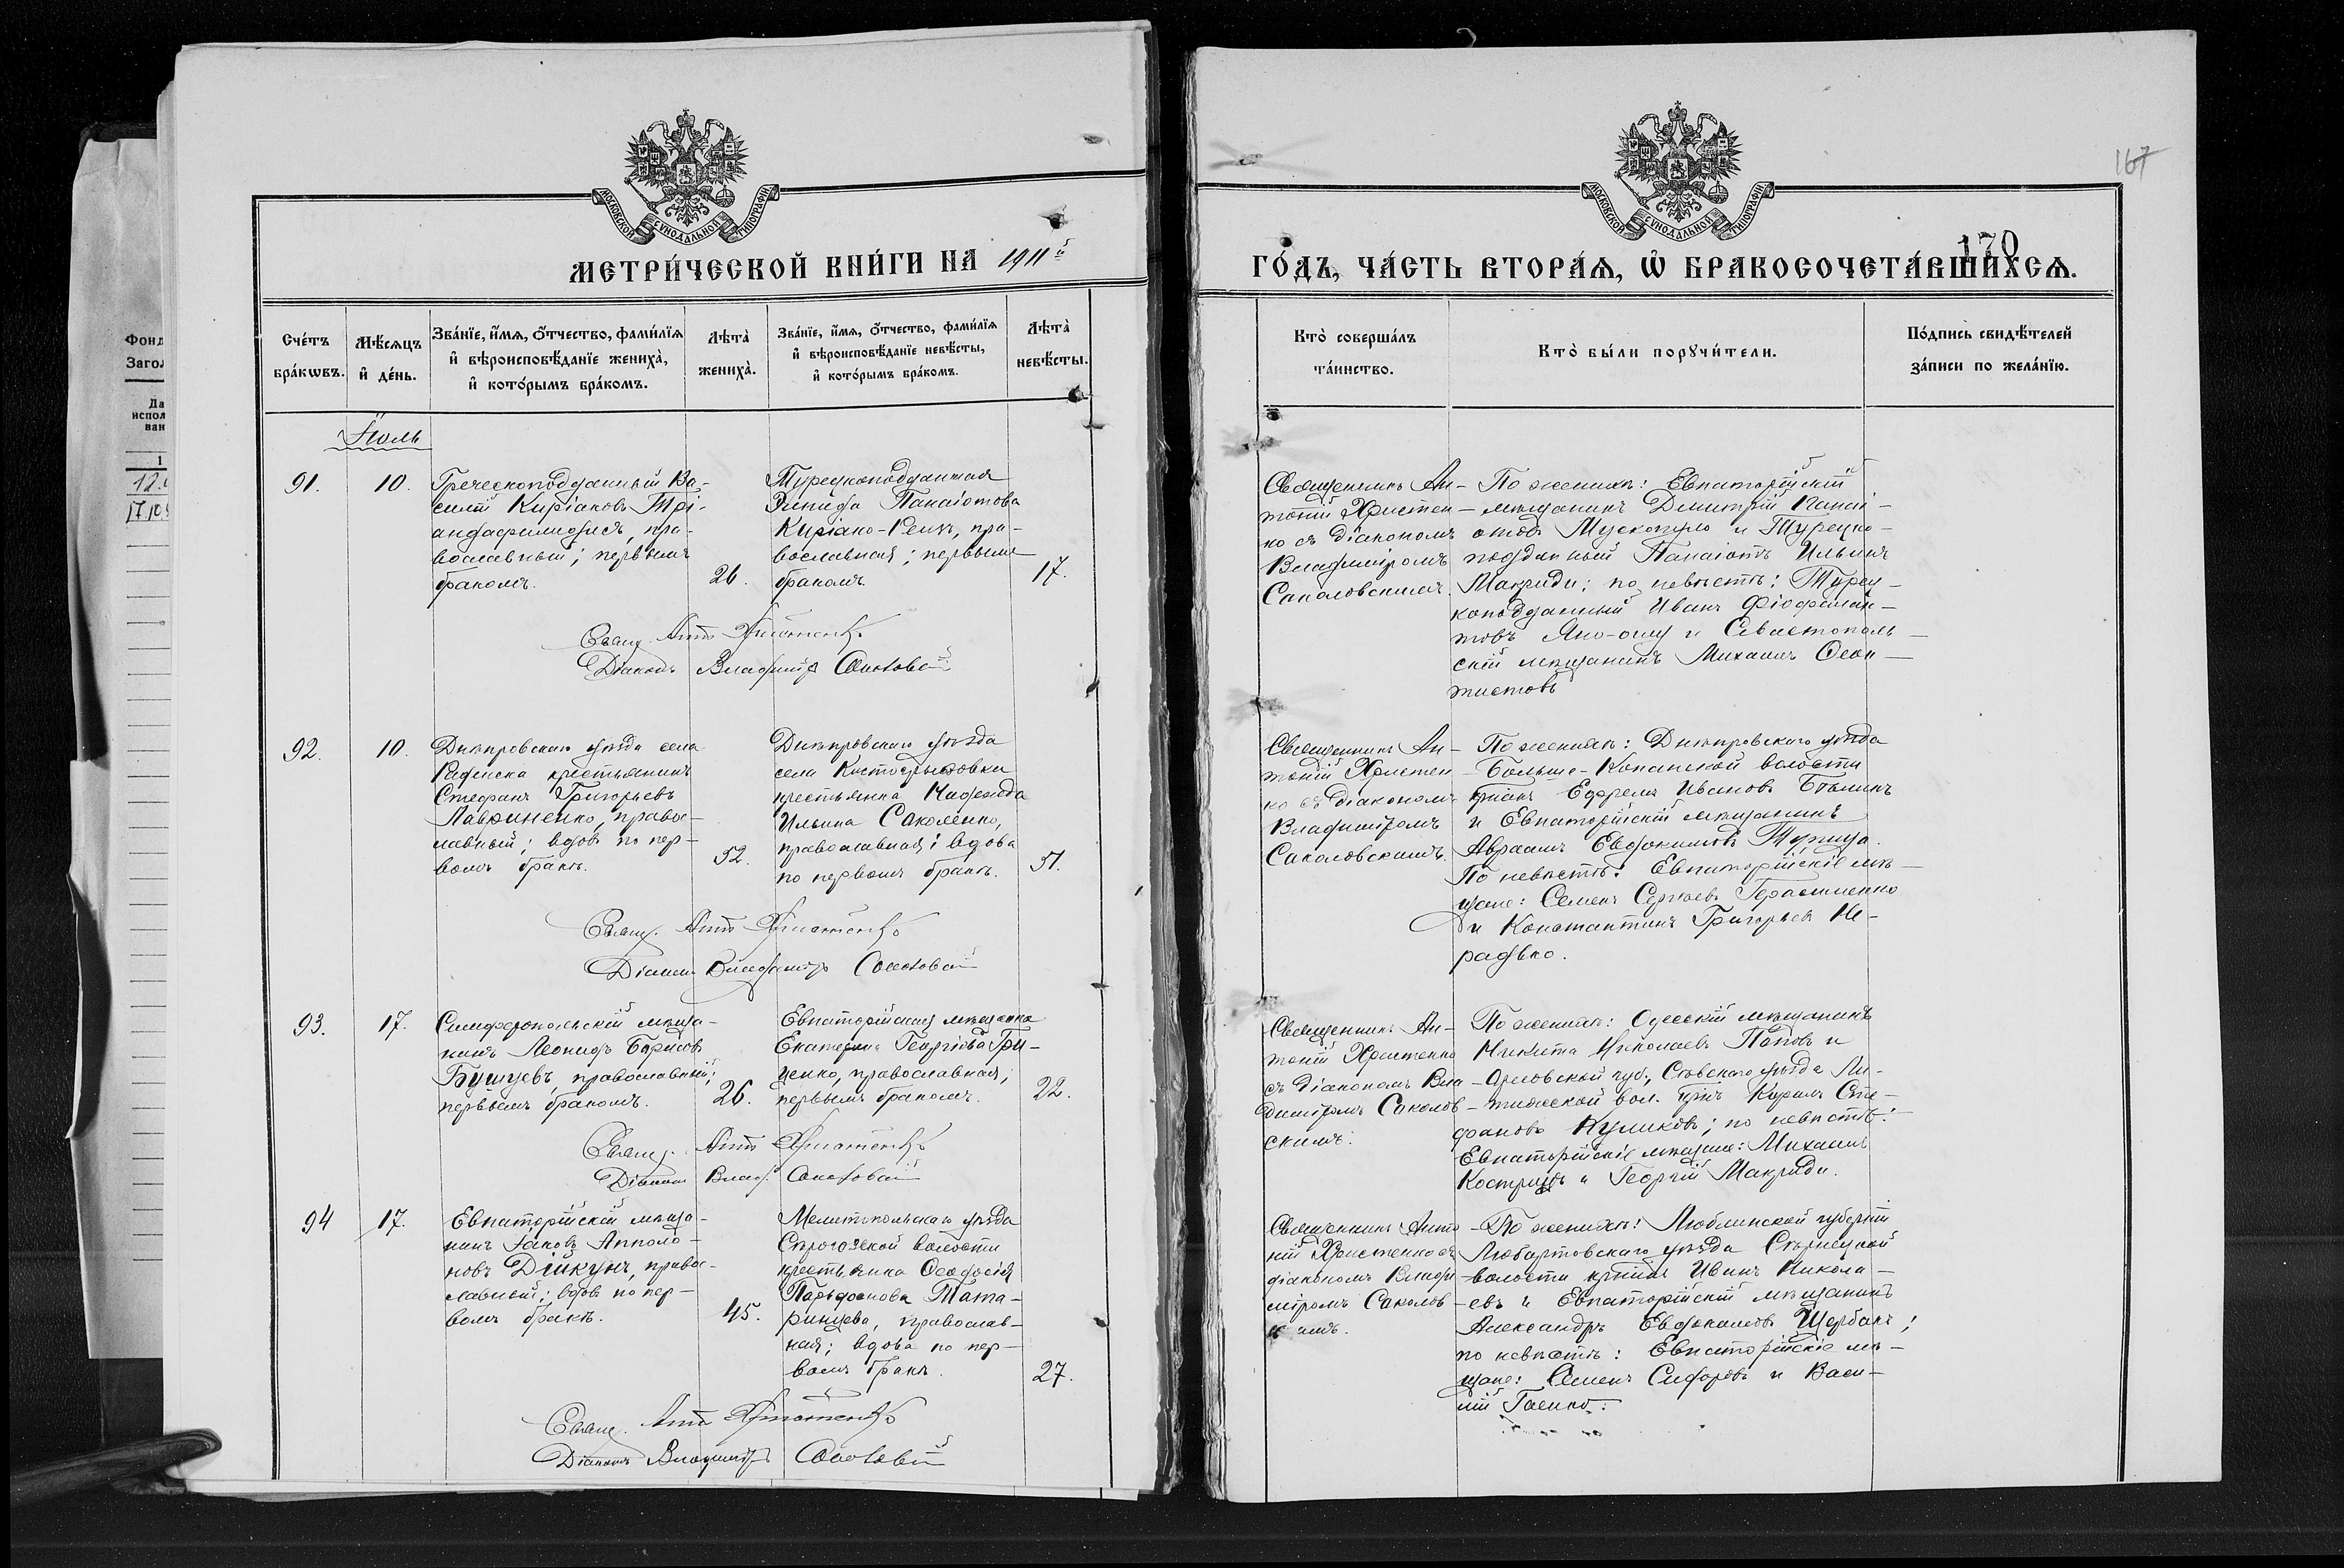 167
170
МОСКОВСКОЙ СѴНОДАЛЬНОЙ ТИПОГРАФІИ
МОСКОВСКОЙ СѴНОДАЛЬНОЙ ТИПОГРАФІИ
МЕТРИ́ЧЕСКОЙ КНИ́ГИ НА 1911й
ГО́ДЪ, ЧА́СТЬ ВТОРА́Ѧ, Ѡ҆ БРАКОСОЧЕТА́ВШИХСѦ.
Фонд
Загол
Да
испол
ван
1
Сче́тъ
бра́кѡвъ.
Мѣ́сѧцъ
и҆ де́нь.
Зва́нїе, и҆́мѧ, ѻ҆́тчество, фами́лїѧ
и҆ вѣроисповѣ́данїе жениха̀,
и҆ кото́рымъ бра́комъ.
Лѣта̀
жениха̀.
Зва́нїе, и҆́мѧ, ѻ҆́тчество, фами́лїѧ
и҆ вѣроисповѣ́данїе невѣ́сты,
и҆ кото́рымъ бра́комъ.
Лѣта̀
невѣ́сты.
Кто̀ соверша́лъ
та́инство.
Кто̀ бы́ли порꙋчи́тели.
По́дпись свидѣ́телей
за́писи по жела́нїю.
Іюль
91.
10.
Греческоподданный Ва-
силій Киріаковъ Трі-
андафилидисъ, пра-
вославный; первымъ
бракомъ.
26.
Турецкоподданная
Панаіотова
Киріако-, пра-
вославная; первымъ
бракомъ.
17.
Священникъ Ан-
тоній Христен-
ко съ діакономъ
Владиміромъ
Соколовскимъ.
По женихѣ: Евпаторійскій
мѣщанинъ Димитрій Панаі-
отовъ Мускопуло и Турецко-
подданный Панаіотъ Ильинъ
Макриди; по невѣстѣ: Турец-
коподданный Иванъ
товъ и Севастополь-
скій мѣщанинъ Михаилъ Ѳеок-
тистовъ
Свящ. Анто Христенко
Діаконъ Владиміръ Соколовскій
92.
10.
Днѣпровскаго уѣзда села
Раденска крестьянинъ
Стефанъ Григорьевъ
Лавриненко, правос-
лавный; вдовъ по пер-
вомъ бракѣ.
52.
Днѣпровскаго уѣзда
села Костогрызовки
крестьянка Надежда
Ильина Соколенко,
православная; вдова
по первомъ бракѣ.
51.
Священникъ Ан-
тоній Христен
ко съ діакономъ
Владиміромъ
Соколовскимъ.
По женихѣ: Днѣпровскаго уѣзда
Больше-Копанской волости
Ефремъ Ивановъ
и Евпаторійскій мѣщанинъ
Авраамъ Евдокимовъ
По невѣстѣ: Евпаторійскіе мѣ-
щане: Семенъ Сергѣевъ Герасименко
и Константинъ Григорьевъ Не-
радько.
Свящ. Анто Христенко
Діаконъ Владиміръ Соколовскій
93.
17.
Симферопольскій мѣща-
нинъ Леонидъ Борисовъ
Бушуевъ, православный;
первымъ бракомъ.
26.
Евпаторійская мѣщанка
Екатерина Георгіева Гри-
ценко, православная;
первымъ бракомъ.
22.
Священникъ Ан-
тоній Христенко
съ діакономъ Вла-
диміромъ Соколов-
скимъ.
По женихѣ: Одесскій мѣщанинъ
Никита Николаевъ Поповъ и
Орловской губ., Сѣвскаго уѣзда Ли-
вол. Кириллъ Сте-
фановъ Куликовъ; по невѣстѣ:
Евпаторійскіе мѣщане: Михаилъ
и Георгій Макриди.
Свящ. Анто Христенко
Діаконъ Влад. Соколовскій
94
17.
Евпаторійскій мѣща-
нинъ Іаковъ Апполо-
новъ Дійкунъ, правос-
лавный; вдовъ по пер-
вомъ бракѣ.
45.
Мелитопольскаго уѣзда
Сѣрогозской волости
крестьянка Ѳеодосія
Парфенова Тата-
ринцева, православ-
ная; вдова по пер-
вомъ бракѣ.
27.
Священникъ Анто
ній Христенко съ
діакономъ Влади
міромъ Соколов
скимъ.
По женихѣ: Люблинской губерніи
Любартовскаго уѣзда
волости Иванъ Никола-
евъ и Евпаторійскій мѣщанинъ
Александръ Евдокимовъ Щербакъ;
по невѣстѣ: Евпаторійскіе мѣ-
щане: Семенъ Сидоровъ и Васи-
лій Гаенко.
Свящ. Анто Христенко
Діаконъ Владиміръ Соколовскій